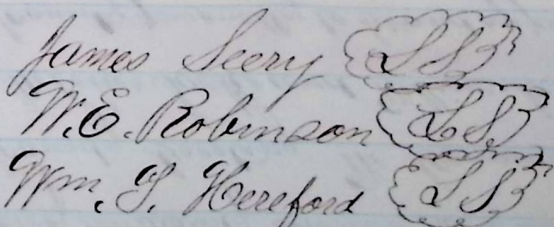 James Seery LS
W. E. Robinson LS
Wm. G. Hereford LS